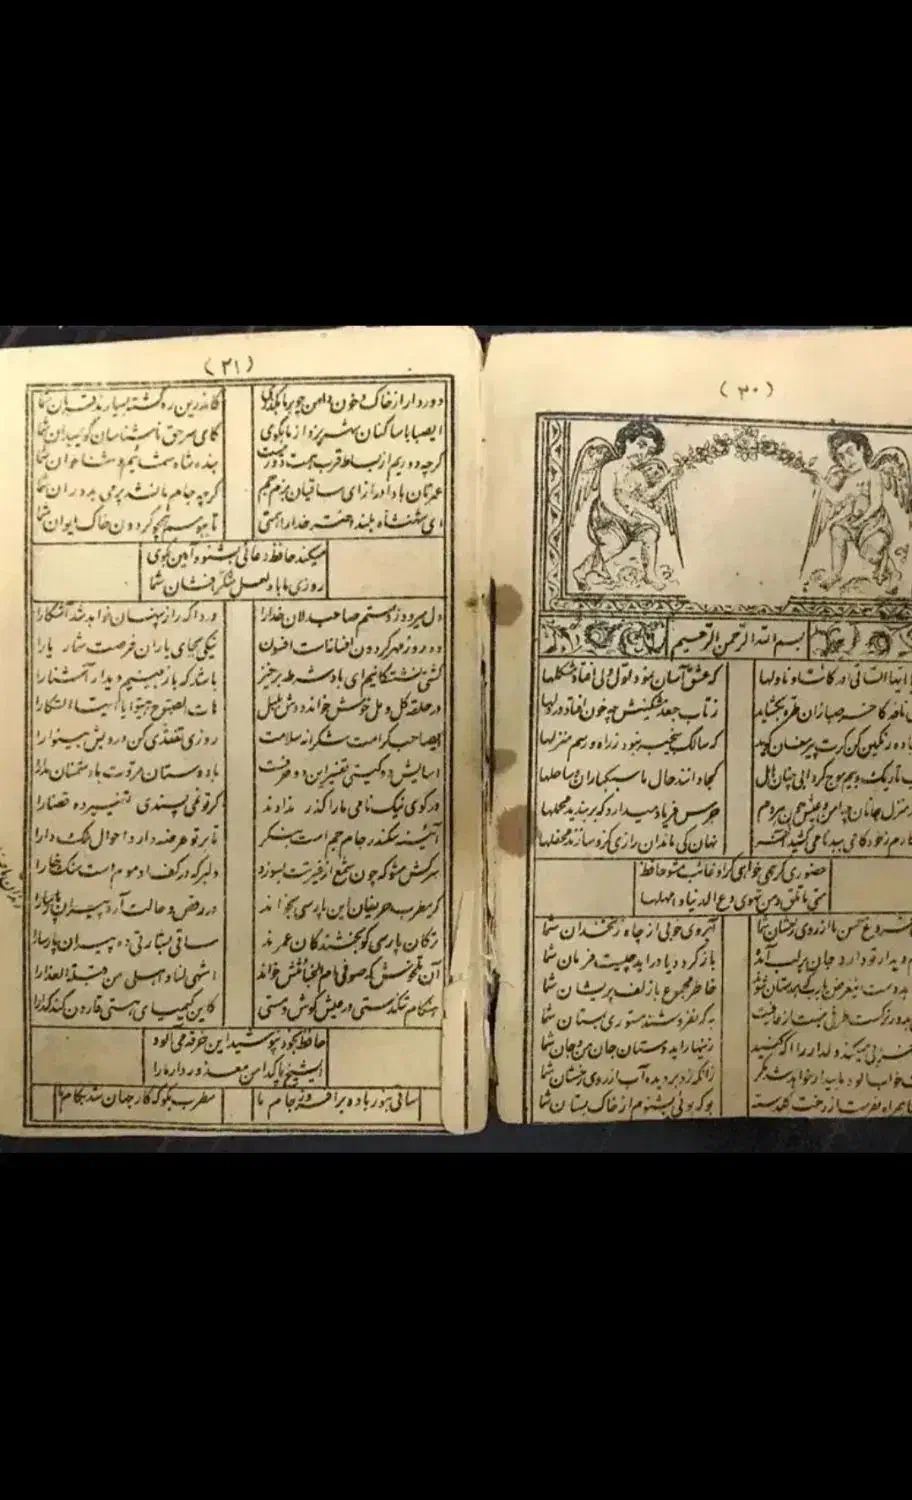 (۳۰)
بسم الله الرحمن الرحیم
ایها الساقی ادر کاسا و ناولها که عشق آسان نمود اول ولی افتاد مشکلها
نافه کاخر صبا زان طره بگشاید ز تاب جعد مشکینش چه خون افتاد در دلها
سجاده رنگین کن گرت پیر مغان گوید که سالک بیخبر نبود ز راه و رسم منزلها
تاریک و بیم موج گردابی چنین هایل کجا دانند حال ما سبکباران ساحلها
منزل جانان چه امن و عیش چون هردم جرس فریاد میدارد که بربندید محملها
کارم ز خود کامی ببدنامی کشید آخر نهان کی ماند آن رازی کزو سازند محفلها
حضوری گر همی خواهی ازو غائب مشو حافظ
متی ما تلق من تهوی دع الدنیا و اهملها
فروغ حسن ما از روی رخشان شما آبروی خوبی از چاه زنخدان شما
دیدار تو دارد جان بر لب آمده باز گردد یا در آید چیست فرمان شما
دهد دست این غرض یارب که همدستان شوند خاطر مجموع ما زلف پریشان شما
بدور نرگست طرفی نبست از عافیت به که نفروشند مستوری بمستان شما
خرابی میکند دلدار را آگه کنید زینهار ای دوستان جان من و جان شما
خواب آلود ما بیدار خواهد شد مگر زانکه زد بر دیده آب از روی رخشان شما
همراه بفرست از رخت گلدسته بو که بوئی بشنوم از خاک بستان شما
(۳۱)
دور دار از خاک و خون دامن چو بر ما بگذری کاندرین ره کشته بسیارند قربان شما
ای صبا با ساکنان شهر یزد از ما بگوی کای سر حق ناشناسان گوی میدان شما
گرچه دوریم از بساط قرب همت دور نیست بنده شاه شمائیم و ثنا خوان شما
عمرتان باد دراز ای ساقیان بزم جم گرچه جام ما نشد پر می بدوران شما
ای شهنشاه بلند اختر خدا را همتی تا ببوسم همچو گردون خاک ایوان شما
میکند حافظ دعائی بشنو و آمین بگوی
روزی ما باد لعل شکر افشان شما
دل میرود ز دستم صاحبدلان خدا را دردا که راز پنهان خواهد شد آشکارا
ده روز مهر گردون افسانه است افسون نیکی بجای یاران فرصت شمار یارا
کشتی نشستگانیم ای باد شرطه برخیز باشد که باز بینیم دیدار آشنا را
در حلقه گل و مل خوش خواند دوش بلبل هات الصبوح هبوا یا ایها السکارا
ای صاحب کرامت شکرانه سلامت روزی تفقدی کن درویش بینوا را
آسایش دو گیتی تفسیر این دو حرفست با دوستان مروت با دشمنان مدارا
در کوی نیک نامی ما را گذر ندادند گر تو نمی پسندی تغییر ده قضا را
آئینه سکندر جام جم است بنگر تا بر تو عرضه دارد احوال ملک دارا
سرکش مشو که چون شمع از غیرتت بسوزد دلبر که در کف او موم است سنگ خارا
گر مطرب حریفان این پارسی بخواند در رقص و حالت آرد پیران پارسا را
ترکان پارسی گو بخشندگان عمرند ساقی بشارتی ده پیران پارسا را
آن تلخوش که صوفی ام الخبائثش خواند اشهی لنا و احلی من قبلة العذارا
هنگام تنگدستی در عیش کوش و مستی کاین کیمیای هستی قارون کند گدا را
حافظ بخود نپوشید این خرقه می آلود
ای شیخ پاکدامن معذور دار ما را
ساقی بنور باده برافروز جام ما مطرب بگو که کار جهان شد بکام ما